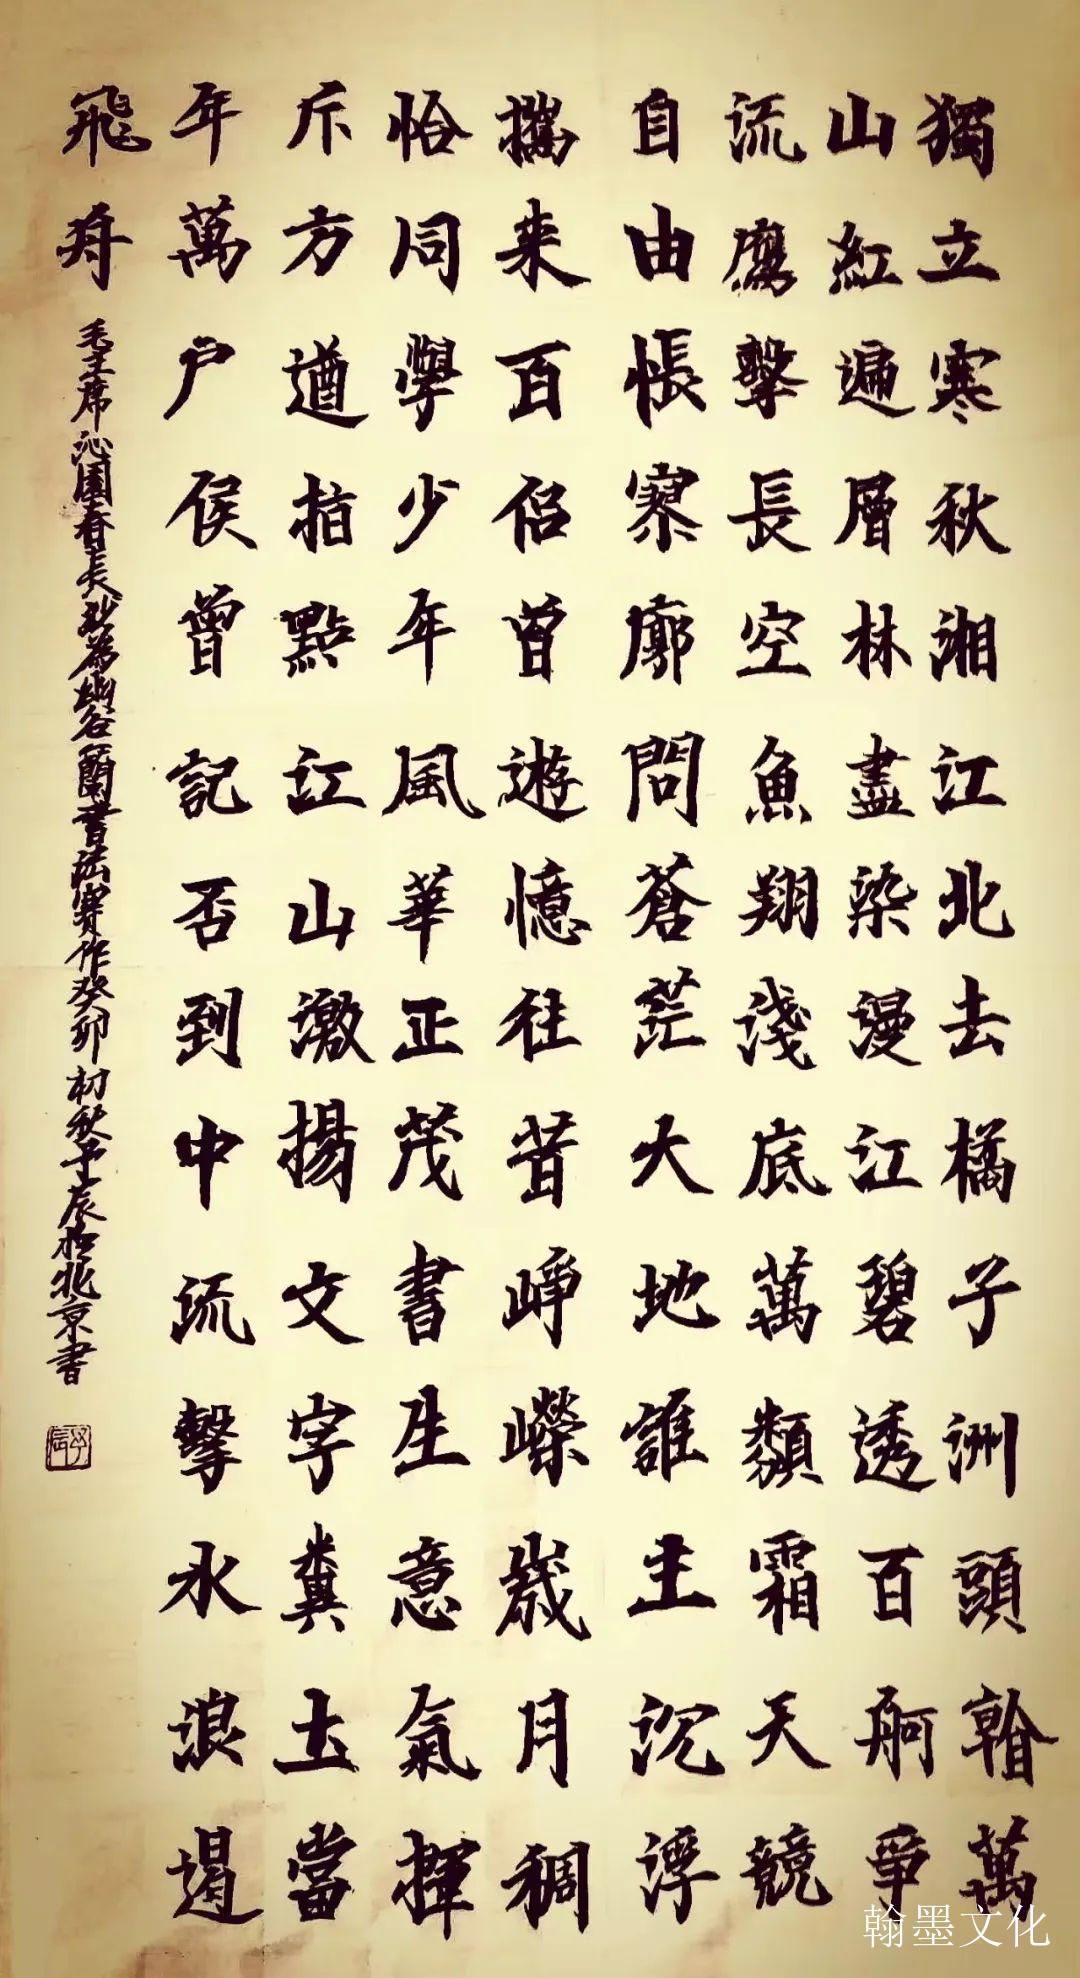 獨立寒秋湘江北去橘子洲頭看萬
山紅遍層林盡染漫江碧透百舸爭
流鷹擊長空魚翔淺底萬類霜天競
自由悵寥廓問蒼茫大地誰主沉浮
攜来百侶曾遊憶往昔崢嶸歲月稠
恰同學少年風華正茂書生意氣揮
斥方遒指點江山激揚文字糞土當
年萬户侯曾記否到中流擊水浪遏
飛舟
毛主席沁園春長沙為幽谷蘭書法賽作癸卯初秋子辰於北京書
子辰
翰墨文化